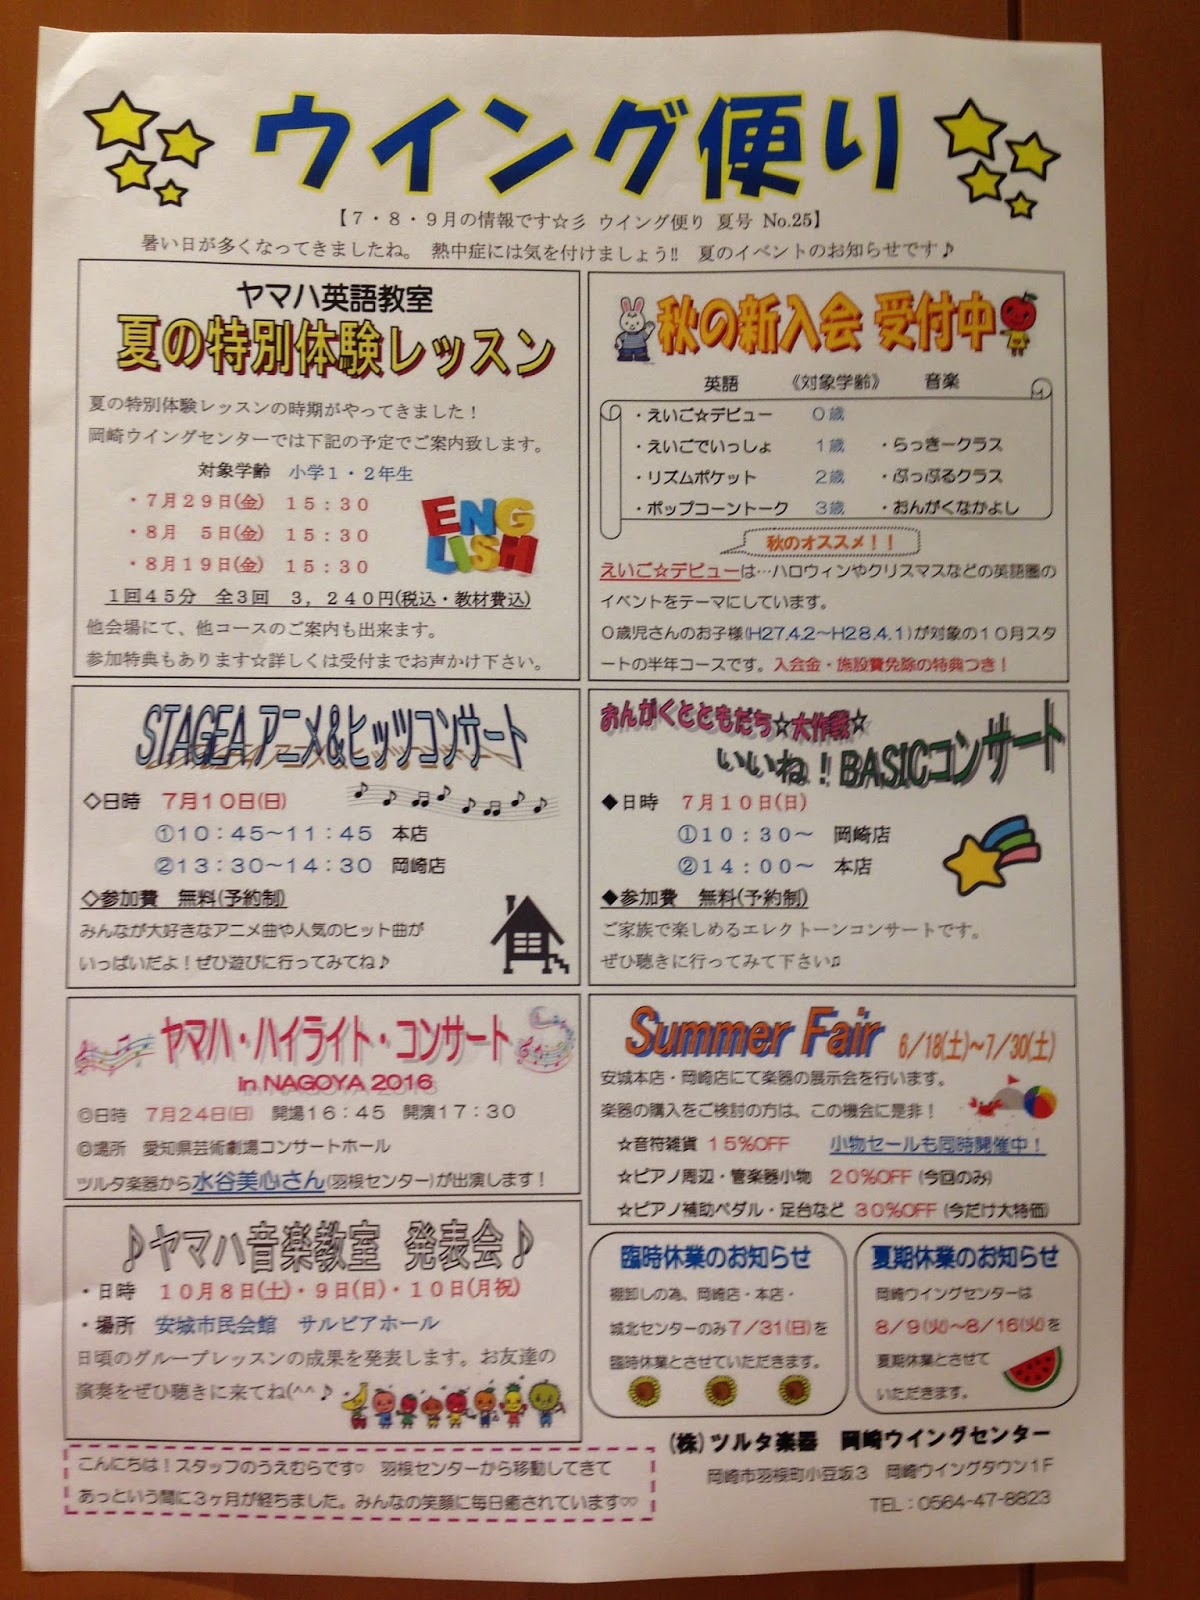 ウイング便り
【７・８・９月の情報です☆彡 ウイング便り 夏号 No.25】
暑い日が多くなってきましたね。 熱中症には気を付けましょう!! 夏のイベントのお知らせです♪
ヤマハ英語教室
夏の特別体験レッスン
夏の特別体験レッスンの時期がやってきました！
岡崎ウイングセンターでは下記の予定でご案内致します。
対象学齢 小学１・２年生
・７月２９日(金) １５：３０
・８月 ５日(金) １５：３０
・８月１９日(金) １５：３０
ENGLISH
１回４５分 全３回 ３，２４０円(税込・教材費込)
他会場にて、他コースのご案内も出来ます。
参加特典もあります☆詳しくは受付までお声かけ下さい。
秋の新入会 受付中
英語 《対象学齢》 音楽
・えいご☆デビュー ０歳
・えいごでいっしょ １歳 ・らっきークラス
・リズムポケット ２歳 ・ぷっぷるクラス
・ポップコーントーク ３歳 ・おんがくなかよし
秋のオススメ！！
えいご☆デビューは…ハロウィンやクリスマスなどの英語圏の
イベントをテーマにしています。
０歳児さんのお子様(H27.4.2～H28.4.1)が対象の１０月スタ
ートの半年コースです。入会金・施設費免除の特典つき！
STAGEA アニメ＆ヒッツコンサート
◇日時 ７月１０日(日)
①１０：４５～１１：４５ 本店
②１３：３０～１４：３０ 岡崎店
◇参加費 無料(予約制)
みんなが大好きなアニメ曲や人気のヒット曲が
いっぱいだよ！ぜひ遊びに行ってみてね♪
おんがくとともだち☆大作戦☆
いいね！BASICコンサート
◆日時 ７月１０日(日)
①１０：３０～ 岡崎店
②１４：００～ 本店
◆参加費 無料(予約制)
ご家族で楽しめるエレクトーンコンサートです。
ぜひ聴きに行ってみて下さい♫
ヤマハ・ハイライト・コンサート
in NAGOYA 2016
◎日時 ７月２４日(日) 開場１６：４５ 開演１７：３０
◎場所 愛知県芸術劇場コンサートホール
ツルタ楽器から水谷美心さん(羽根センター)が出演します！
Summer Fair 6/18(土)～7/30(土)
安城本店・岡崎店にて楽器の展示会を行います。
楽器の購入をご検討の方は、この機会に是非！
☆音符雑貨 １５％OFF 小物セールも同時開催中！
☆ピアノ周辺・管楽器小物 ２０％OFF (今回のみ)
☆ピアノ補助ペダル・足台など ３０％OFF (今だけ大特価)
♪ヤマハ音楽教室 発表会♪
・日時 １０月８日(土)・９日(日)・１０日(月祝)
・場所 安城市民会館 サルビアホール
日頃のグループレッスンの成果を発表します。お友達の
演奏をぜひ聴きに来てね(^^♪
臨時休業のお知らせ
棚卸しの為、岡崎店・本店・
城北センターのみ７/３１(日)を
臨時休業とさせていただきます。
夏期休業のお知らせ
岡崎ウイングセンターは
８/９(火)～８/１６(火)を
夏期休業とさせて
いただきます。
こんにちは！スタッフのうえむらです♡ 羽根センターから移動してきて
あっという間に３ヶ月が経ちました。みんなの笑顔に毎日癒されています♡♡
(株)ツルタ楽器 岡崎ウイングセンター
岡崎市羽根町小豆坂３ 岡崎ウイングタウン１F
TEL：0564-47-8823